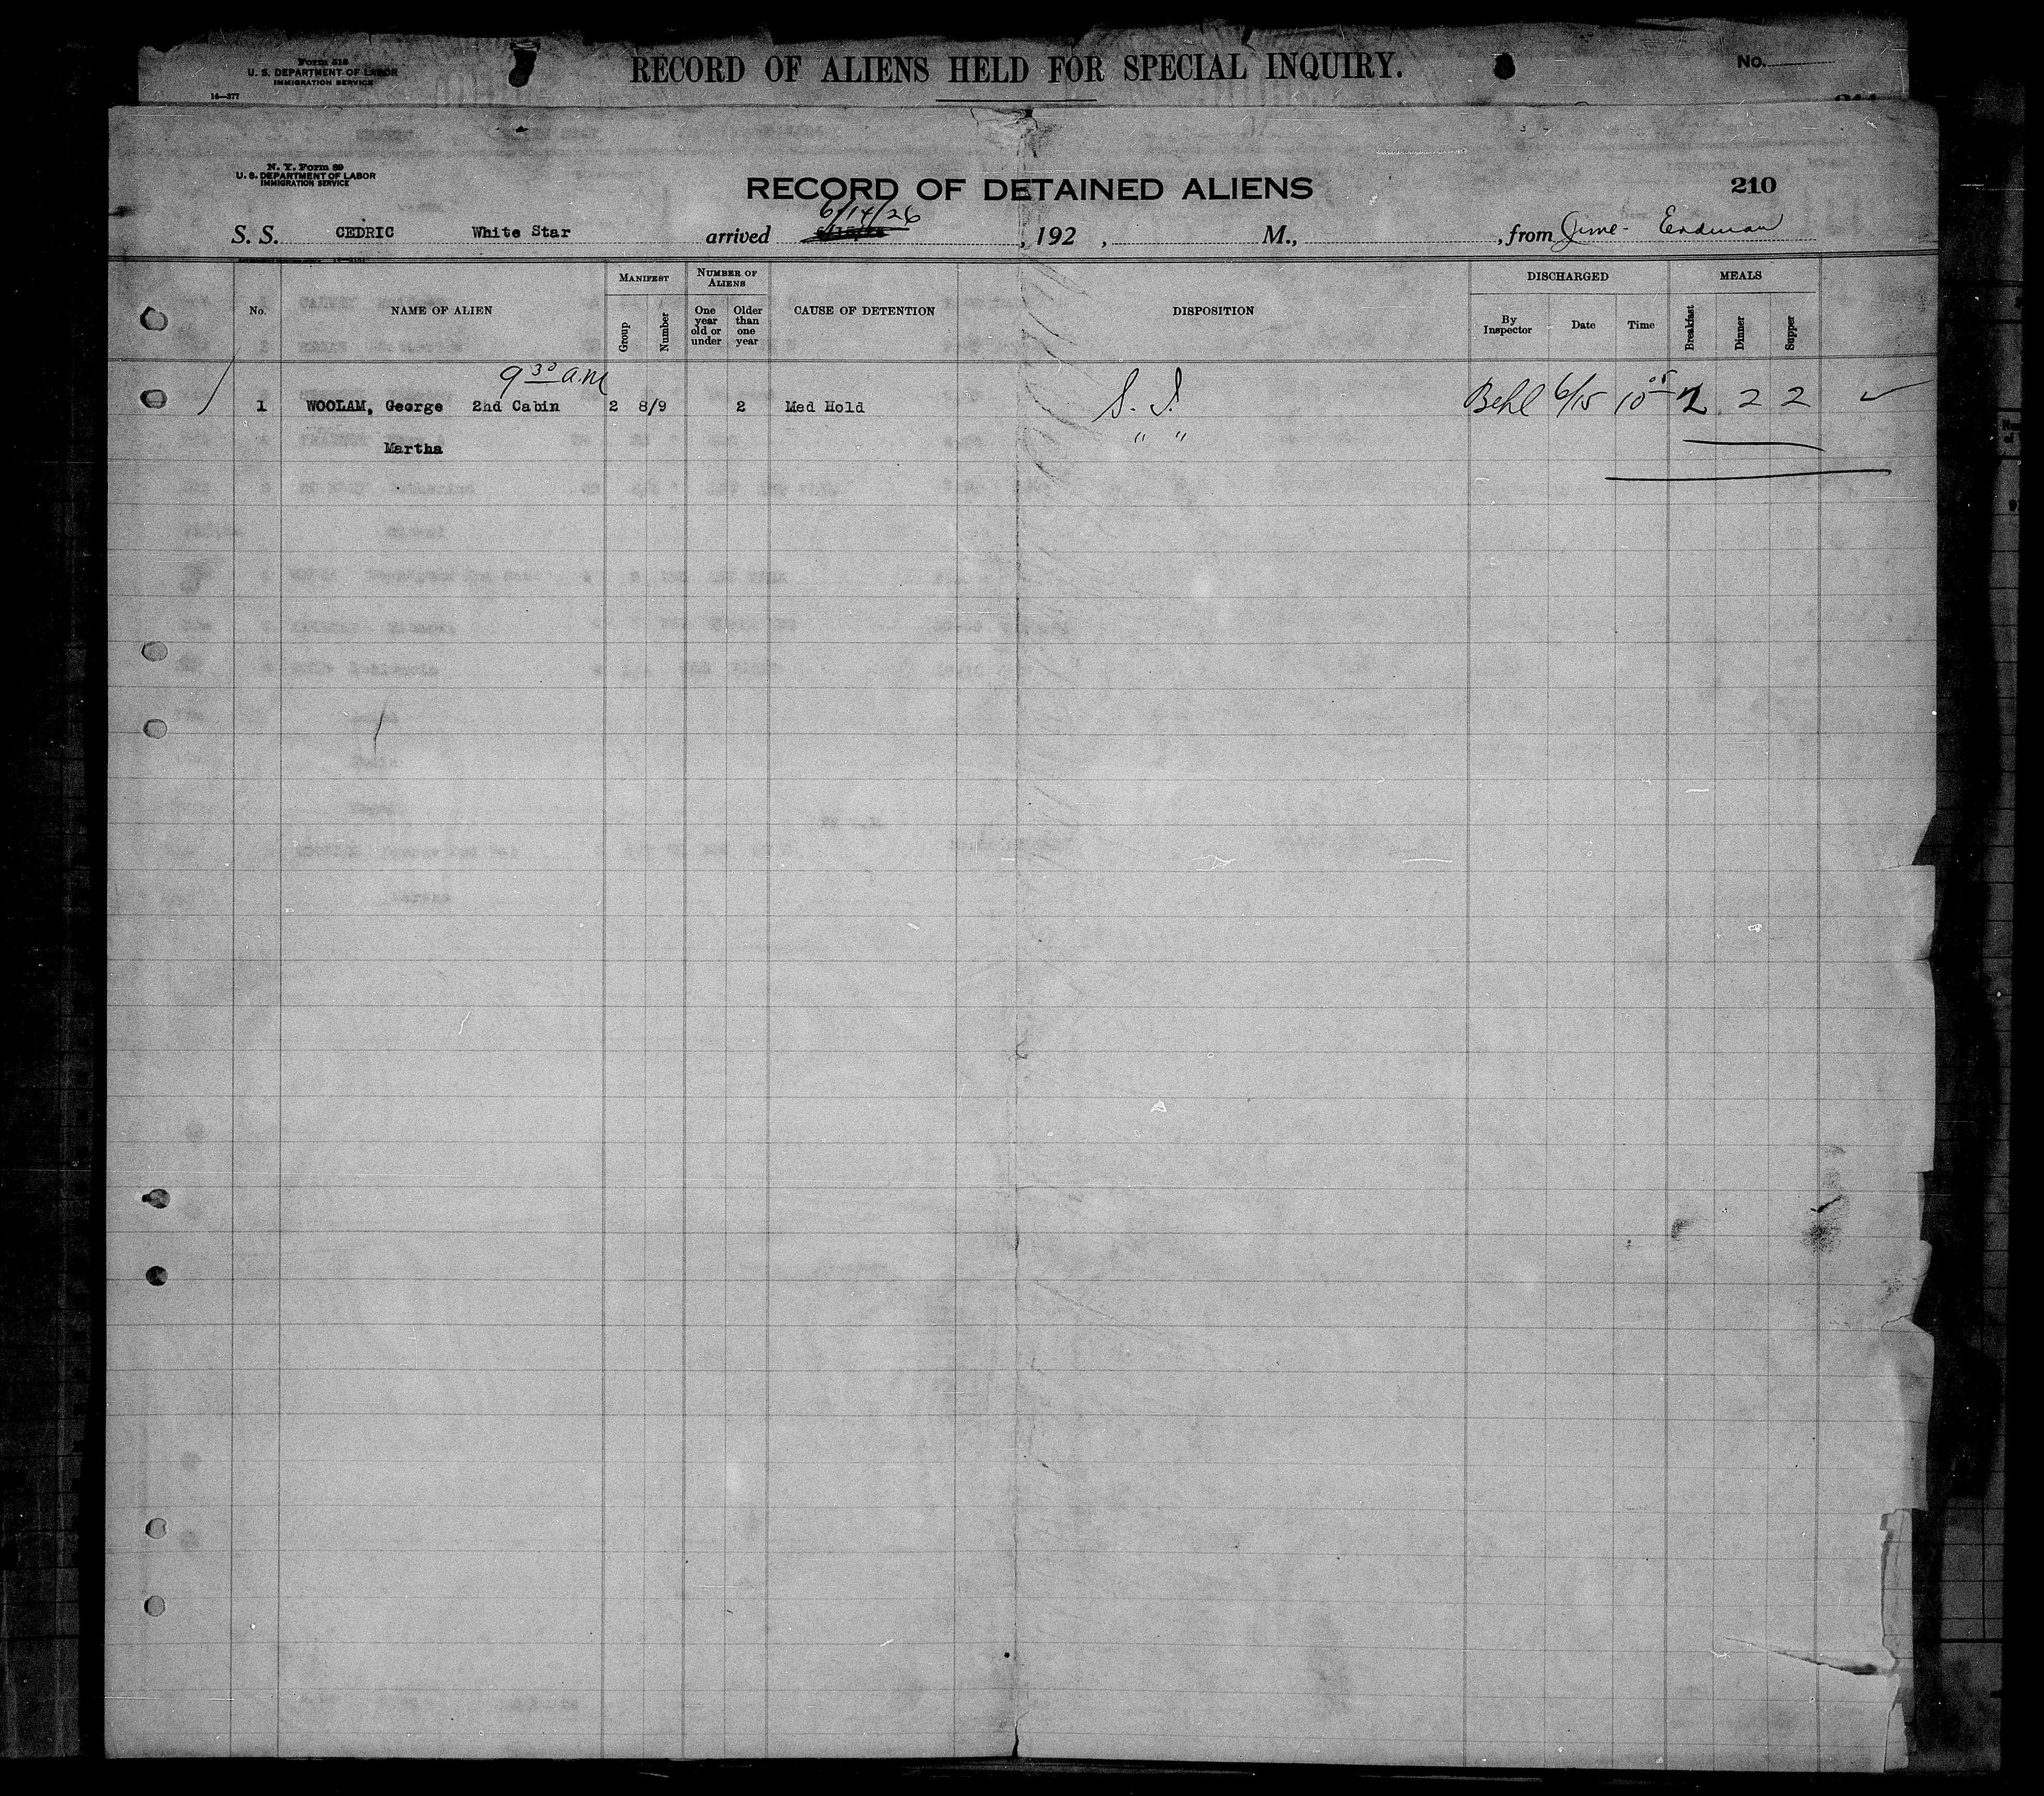 Form 518
U. S. DEPARTMENT OF LABOR
IMMIGRATION SERVICE
14—377
RECORD OF ALIENS HELD FOR SPECIAL INQUIRY.
No.
N. Y. Form 89
U. S. DEPARTMENT OF LABOR
IMMIGRATION SERVICE
RECORD OF DETAINED ALIENS
210
6/14/26
S. S. CEDRIC White Star arrived , 192 , M., , from
MANIFEST NUMBER OF ALIENS DISCHARGED MEALS
No. NAME OF ALIEN Group Number One year old or under Older than one year CAUSE OF DETENTION DISPOSITION By Inspector Date Time Breakfast Dinner Supper
9 30 a.m
1 WOOLAM, George 2nd Cabin 2 8/9 2 Med Hold S. I. Behl 6/15 10 05 2 2 2 ✓
Martha " "